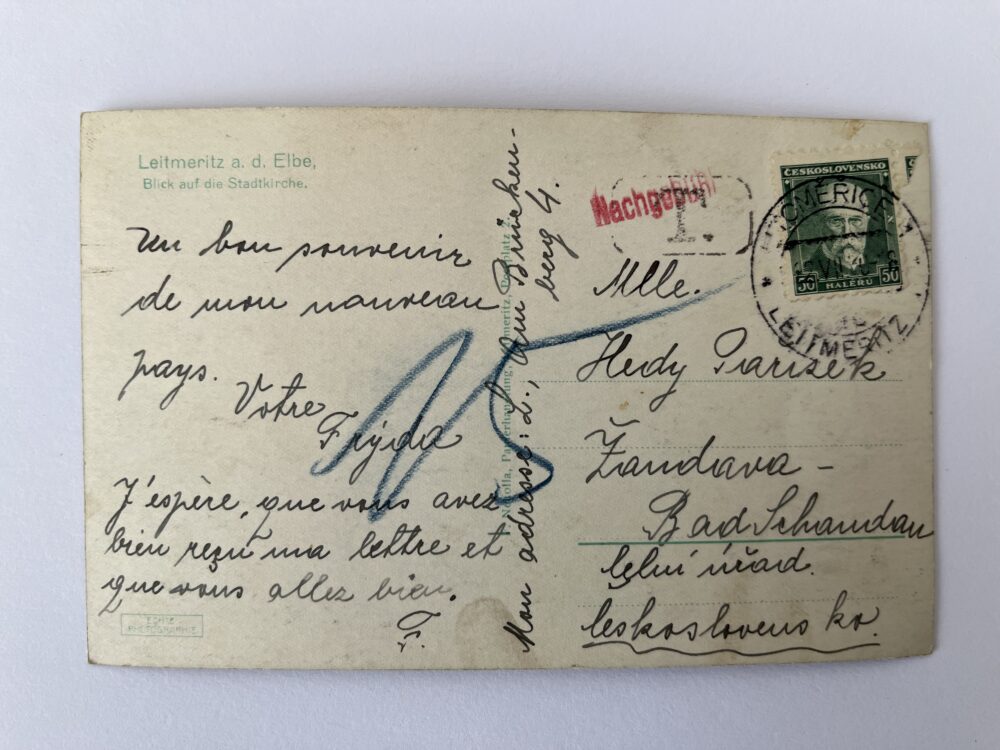 Leitmeritz a. d. Elbe,
Blick auf die Stadtkirche.
Un bon souvenir
de mon nouveau
pays.
Votre
Frýda
J'espère, que vous avez
bien reçu ma lettre et
que vous allez bien.
F.
ECHTE
PHOTOGRAPHIE
Mon adresse: L., Am Brücken-
berg 4.
15
Nachgebühr
T.
ČESKOSLOVENSKO
50 50
HALÉŘŮ
LITOMĚŘICE 1
LEITMERITZ
Mlle.
Hedy Parizek
Žandava -
Bad Schandau
celní úřad.
Československo.